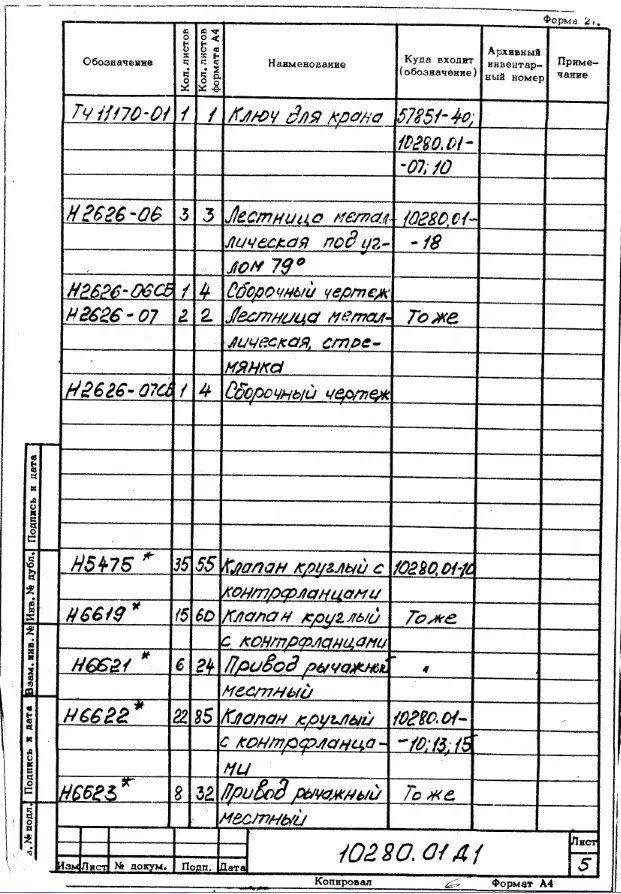 Форма 2
Обозначение Кол. листов Кол. листов формата А4 Наименование Куда входит (обозначение) Архивный инвентарный номер Примечание
ТЧ 11170-01 1 1 Ключ для крана 57851-40;
10280.01-
-07; 10
Н2626-06 3 3 Лестница метал- 10280.01-
лическая под уг- -18
лом 79°
Н2626-06СБ 1 4 Сборочный чертеж
Н2626-07 2 2 Лестница метал- То же
лическая, стре-
мянка
Н2626-07СБ 1 4 Сборочный чертеж
Н5475 * 35 55 Клапан круглый с 10280.01-10
контрфланцами
Н6619 * 15 60 Клапан круглый То же
с контрфланцами
Н6621 * 6 24 Привод рычажный "
местный
Н6622 * 22 85 Клапан круглый 10280.01-
с контрфланца- -10; 13; 15
ми
Н6623 * 8 32 Привод рычажный То же
местный
Подпись и дата
Инв. № дубл.
Взам. инв. №
Подпись и дата
в. № подл.
10280.01 Д1
Лист
5
Изм Лист № докум. Подп. Дата
Копировал 6 Формат А4